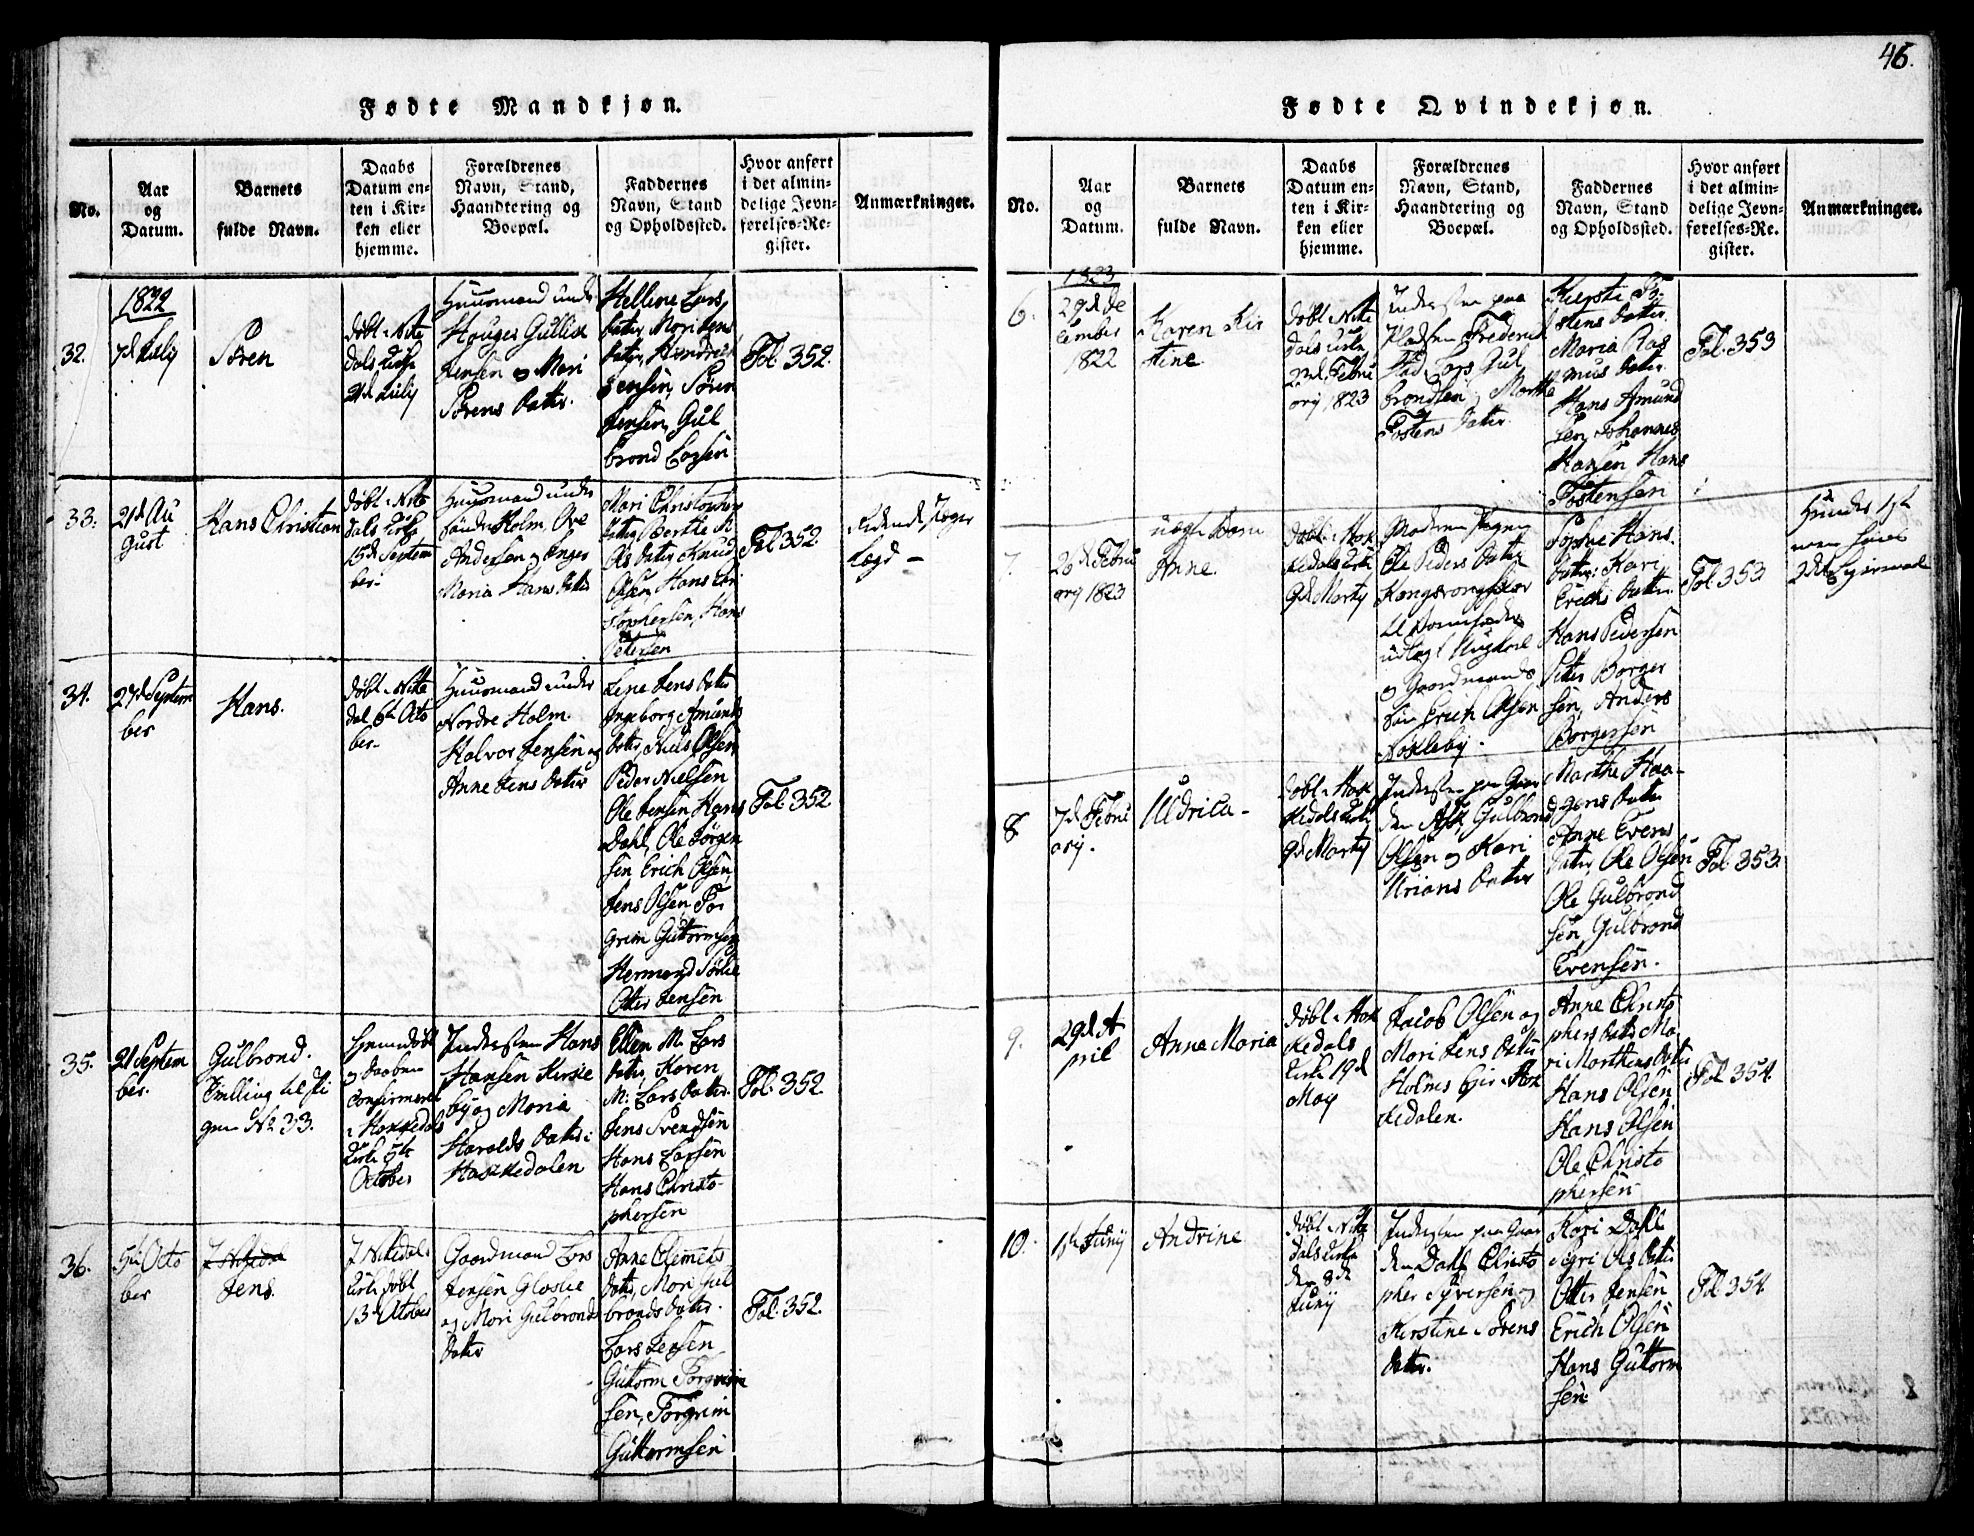 46.
Fødte Mandkjøn.
No.
Aar
og
Datum.
Barnets
fulde Navn.
Daabs
Datum en-
ten i Kir-
ken eller
hjemme.
Forældrenes
Navn, Stand,
Haandtering og
Boepæl.
Faddernes
Navn, Stand
og Opholdssted.
Hvor anført
i det almin-
delige Jevn-
førelses-Re-
gister.
Anmærkninger.
1822
32.
7d Julij
Søren
døbt i Nitte
dals Kirke
21d Julij
Huusmand under
Houger Gullik
Jensen og Mari
Sørens datter.
Helline Lars
datter, Mari Jens
datter, Hendrich
Jensen, Søren
Jensen, Gul
brand Larsen
Fol. 352.
33.
21d Au
gust
Hans Christian
døbt i Nitte
dals Kirke
15d Septem
ber.
Huusmand under
Søndre Holm Ove
Andersen og Inger
Maria Hans datter
Mari Christophers
datter Berthe M.
Ols datter Knud
Olsen, Hans Chri
stophersen, Hans
Petersen
Fol 352.
Ridende Jæger
Lægd –
34.
27d Septem
ber
Hans.
døbt i Nitte
dal 6te Octo
ber.
Huusmand under
Nordre Holm.
Halvor Jensen og
Anne Jens datter
Lene Jens datter
Ingeborg Amunds
datter, Niels Olsen,
Peder Nielsen
Ole Jensen Hans
Dahl, Ole Jørgen
sen Erich Olsen,
Jens Olsen Tor
grim Guttormsen
Hermand Sørlie
Otter Jensen
Fol 352
35.
21 Septem
ber.
Gulbrand.
Tvilling til Pi
gen No 33.
Hjemdøbt
og daaben
confirmeret
i Hakkedals
Kirke 5te
October
Indersten Hans
Hansen Kirke
by og Maria
Haralds datter i
Hakkedalen
Ellen M. Lars
datter, Karen
M. Lars datter.
Jens Svendsen
Hans Larsen
Hans Christo
phersen
Fol. 352.
36.
5te Octo
ber
Jens.
I Nitedals
Kirke døbt
13d October
Gaardmand Lars
Jensen Glaslie
og Mari Gulbrands
datter
Anne Clemets
datter, Mari Gul
brands datter.
Lars Jensen
Guttorm Torgrim
sen, Torgrim
Guttormsen
Fol. 352.
Fødte Qvindekjøn.
No.
Aar
og
Datum.
Barnets
fulde Navn.
Daabs
Datum en-
ten i Kir-
ken eller
hjemme.
Forældrenes
Navn, Stand,
Haandtering og
Boepæl.
Faddernes
Navn, Stand
og Opholdssted.
Hvor anført
i det almin-
delige Jevn-
førelses-Re-
gister.
Anmærkninger.
1823
6.
29d De
cember
1822
Karen Kir
stine.
døbt i Nitte
dals Kirke
2d Febru
arij 1823
Indersten paa
Pladsen Frederich
stad, Lars Gul
brandsen og Marthe
Tostens datter
Kiersti To
stens datter.
Maria Ras
mus datter.
Hans Amund
sen Johannes
Hansen Hans
Tostensen
Fol. 353
7.
26d Febru
arij 1823
uægte Barn
Anne.
døbt i Hak
kedals Kirke
9d Marty
Moderen Pigen
Ole Peders datter
Kongsvongseier
til Barnefader
udlagt Ungkarl
og Gaardmands
søn Erich Olsen
Nokleby.
Sophie Hans
datter, Kari
Erichs datter.
Hans Pedersen
Peter Borger
sen, Anders
Borgersen
Fol 353
8
7d Febru
arij.
Uldrica –
døbt i Hak
kedals Kirke
9d Marty
Indersten paa Gaar
den Ask, Gulbrand
Olsen og Kari
Urians datter
Marthe Haa-
gens datter
Anne Evens
datter, Ole Olsen
Ole Gulbrand
sen, Gulbrand
Evensen.
Fol 353
9.
29d A
pril
Anna Maria
døbt i Hak
kedals
Kirke 19d
May
Jacob Olsen og
Mari Jens datter
Holms Eie i Hak
kedalen.
Anne Christo
phers datter Ma
ri Marthens datter
Hans Olsen
Hans Olsen
Ole Christo
phersen
Fol 354
10.
1ste Junij
Andrine
døbt i Nitte
dals Kirke
den 8de
Junij
Indersten paa Gaar
den Dahl Christo
pher Syversen og
Kirstine Sørens
datter.
Kari Dahl
Sigri Ols datter
Otter Jensen
Erich Olsen
Hans Guttorm
sen.
Fol 354